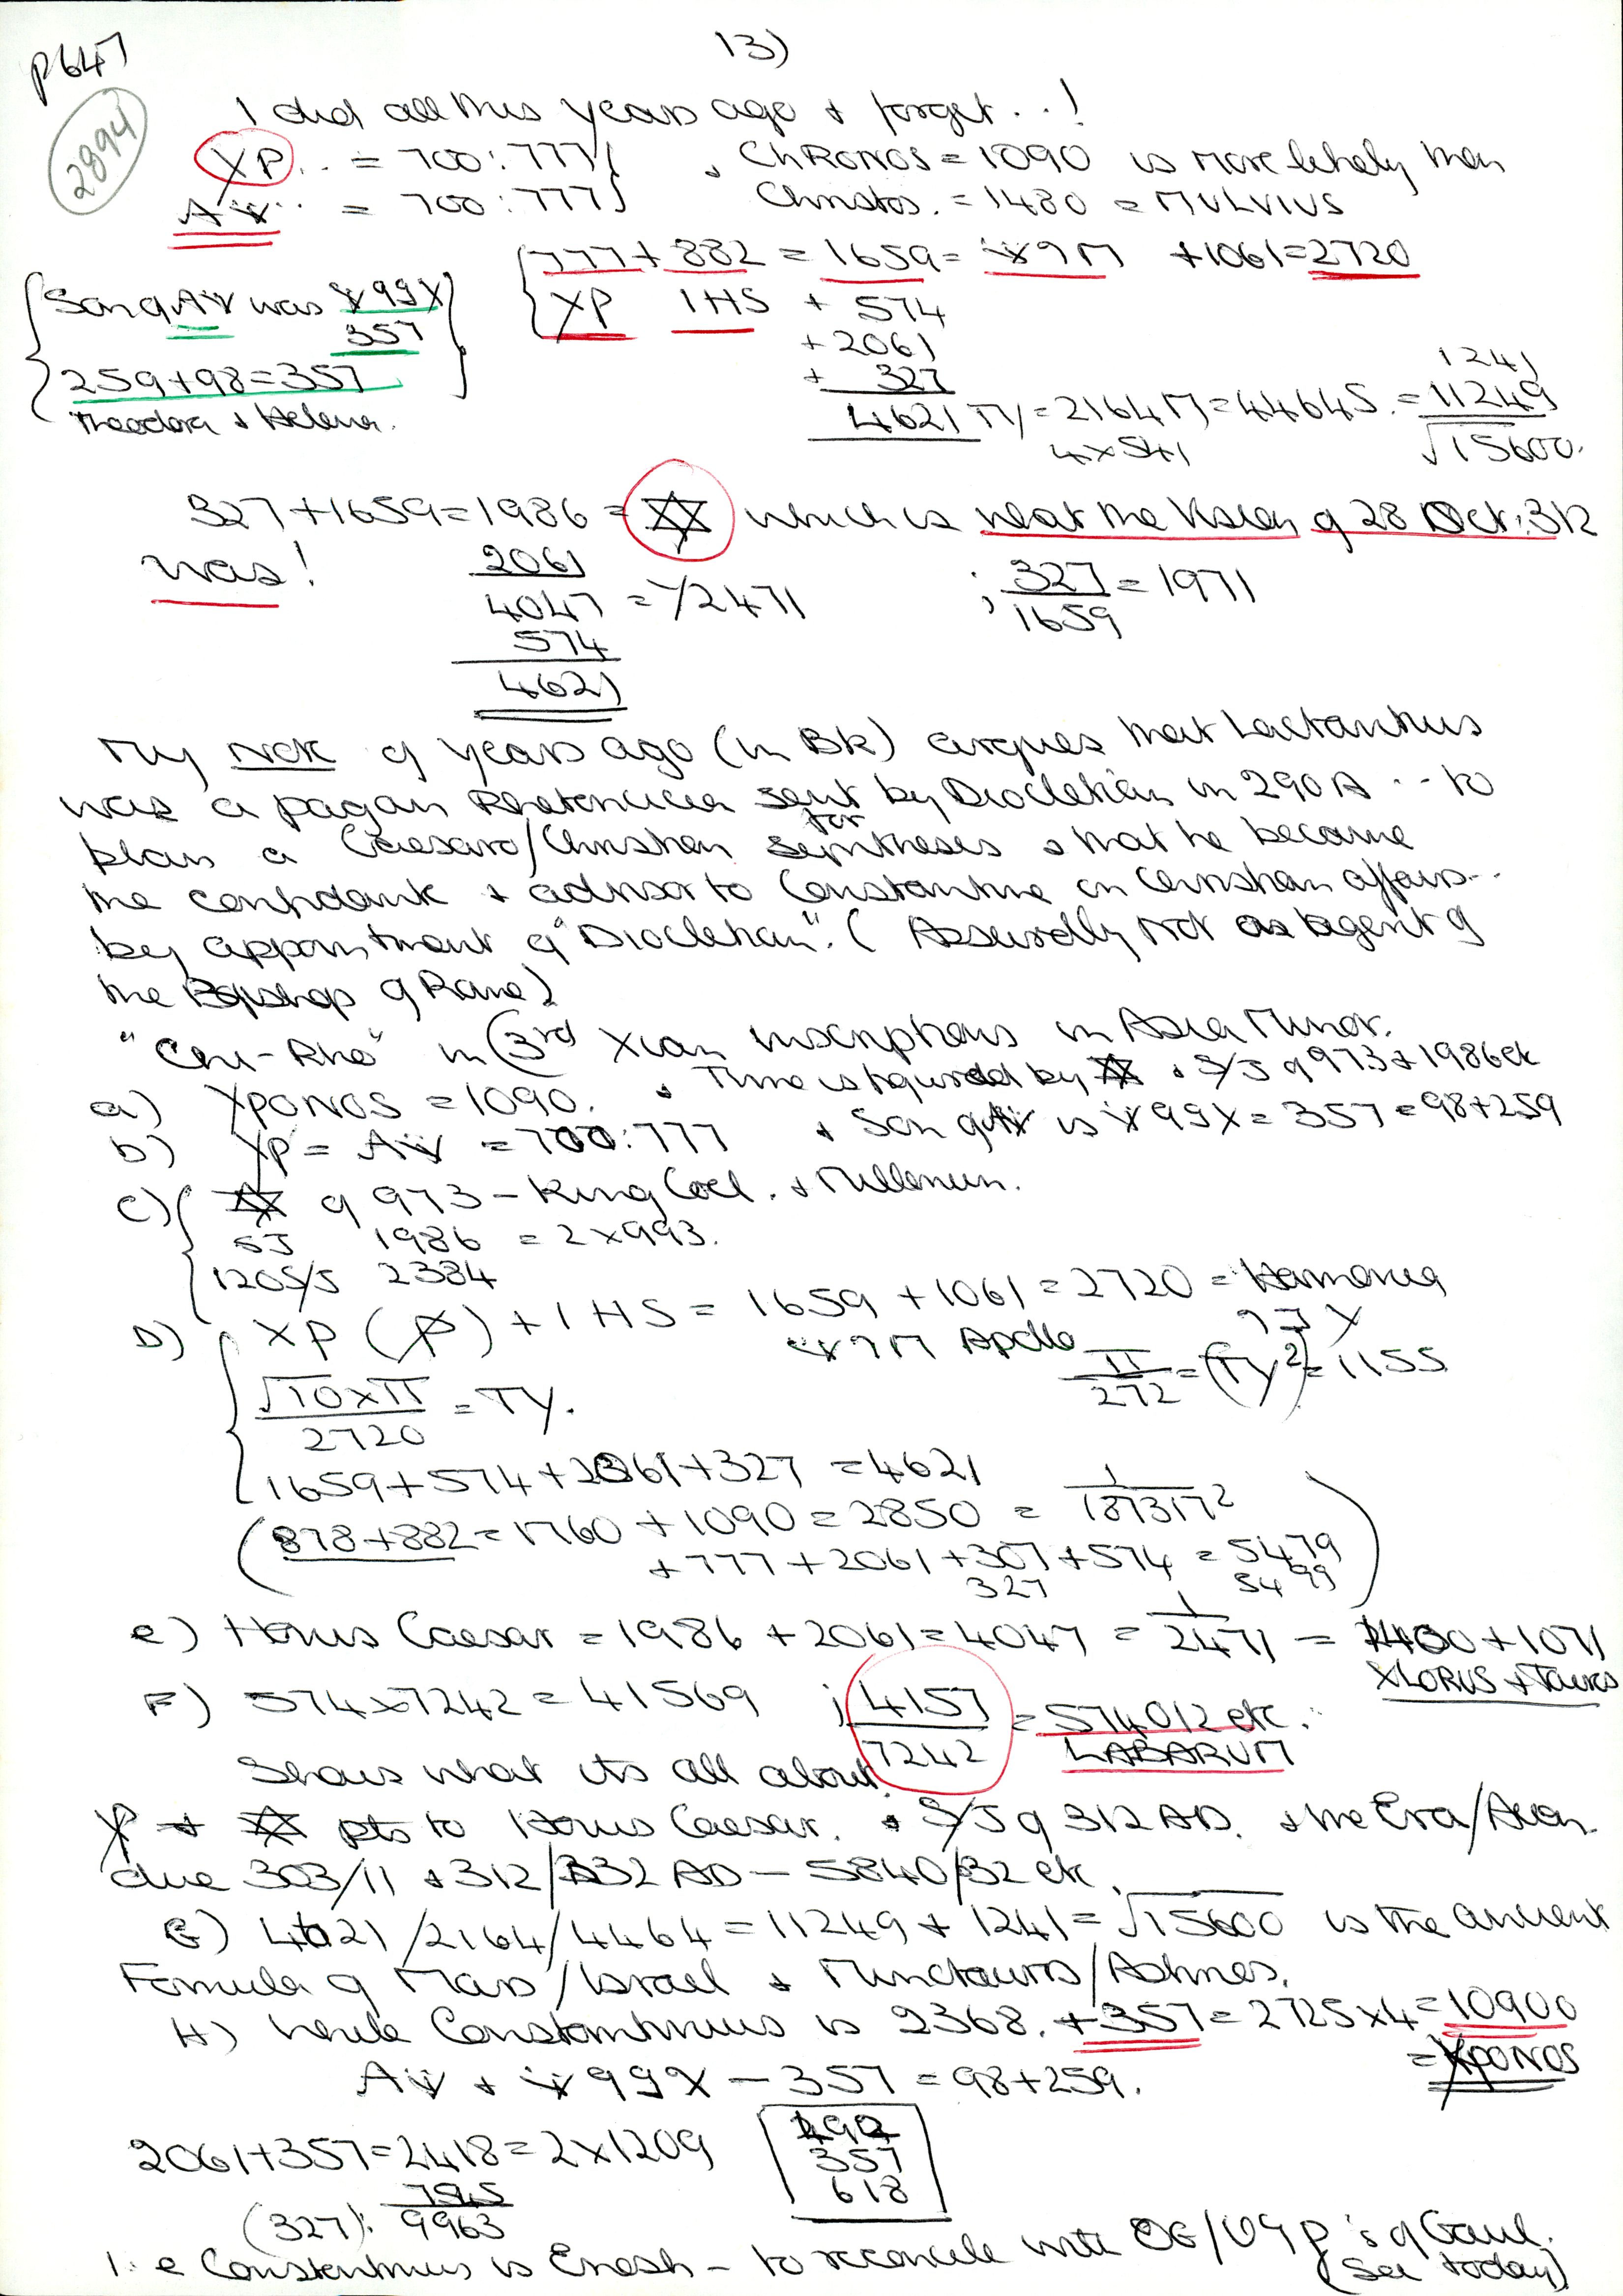 p647
13)
2894
I did all this years ago + forget...!
XP.. = 700:777}
ChRONOS = 1090 is more likely than
= 700:777}
Christos. = 1480 = MULVIUS
777 + 882 = 1659 = +1061 = 2720
XP IHS + 574
Son of was
357
+ 2061
259+98=357
+ 327
Theodora + Helena.
4621 TY = 2164 M = 4464 S. = 11249
1241
4x541
√15600.
327 + 1659 = 1986 = ✡ which is what the Vision of 28 Oct: 312
was!
2061
4047 = 1/2471
; 327 = 1971
1659
574
4621
My Note of years ago (in BK) argues that Lactantius
was a pagan Rhetorician sent by Diocletian in 290 A .. to
plan a Caesaro/Christian for syntheses & that he became
the confidant + advisor to Constantine on Christian affairs..
by appointment of "Diocletian". (Assuredly not as agent of
the Bishop of Rome)
"Chi-Rho" in (3rd Xian inscriptions in Asia Minor.
a) XPONOS = 1090. + Time is figured by ✡ + S/J of 973 + 1986 etc
b) XP = = 700:777 + Son of is = 357 = 98+259
c) ✡ of 973 - King Coel. + Millenium.
SJ 1986 = 2x993.
120S/J 2384
D) XP ( ) + IHS = 1659 + 1061 = 2720 = Harmonia
Apollo
√10 x π = TY.
2720
π = (TY²) = 1155
272
1659 + 574 + 2061 + 327 = 4621
(878+882 = 1760 + 1090 = 2850 = 1
187317²
+ 777 + 2061 + 307 + 574 = 5479
327 5499
e) Horus Caesar = 1986 + 2061 = 4047 = 1 = 1400 + 1071
2471
XLORUS + Taurus
F) 574x7242 = 41569 ; 4157 = 574012 etc.
7242 LABARUM
Shows what its all about
+ ✡ pts to Horus Caesar. + S/J of 312 AD. + the Era/Aion
due 303/11 + 312/332 AD - 5840/32 etc.
G) 4621/2164/4464 = 11249 + 1241 = √15600 is the ancient
Formula of Mars/Israel + Minotauros/Admes.
H) while Constantinus is 2368. + 357 = 2725 x 4 = 10900
= XPONOS
+ - 357 = 98+259.
2061 + 357 = 2418 = 2x1209
357
618
(327): 7945
9963
I.e Constantinus is Enosh - to reconcile with OG/ of Gaul.
(See today)